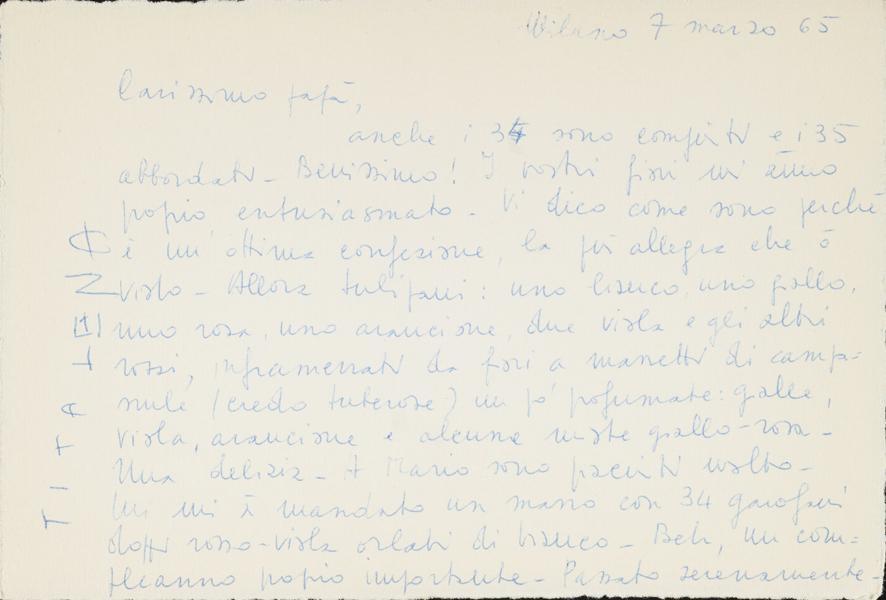 Milano 7 marzo 65
Carissimo papà,
anche i 34 sono compiuti e i 35
abbordati - Benissimo! I vostri fiori mi ànno
propio entusiasmato - Vi dico come sono perché
è un'ottima confezione, la più allegra che ò
visto - Allora tulipani: uno bianco, uno giallo,
uno rosa, uno arancione, due viola e gli altri
rossi, inframezzati da fiori a mazzetti di campa=
nule (credo tuberose) un po' profumate: gialle,
viola, arancione e alcune miste giallo-rosa -
Una delizia - A Mario sono piaciuti molto -
Lui mi à mandato un mazzo con 34 garofani
doppi rosso-viola orlati di bianco - Beh, un com=
pleanno propio importante - Passato serenamente -